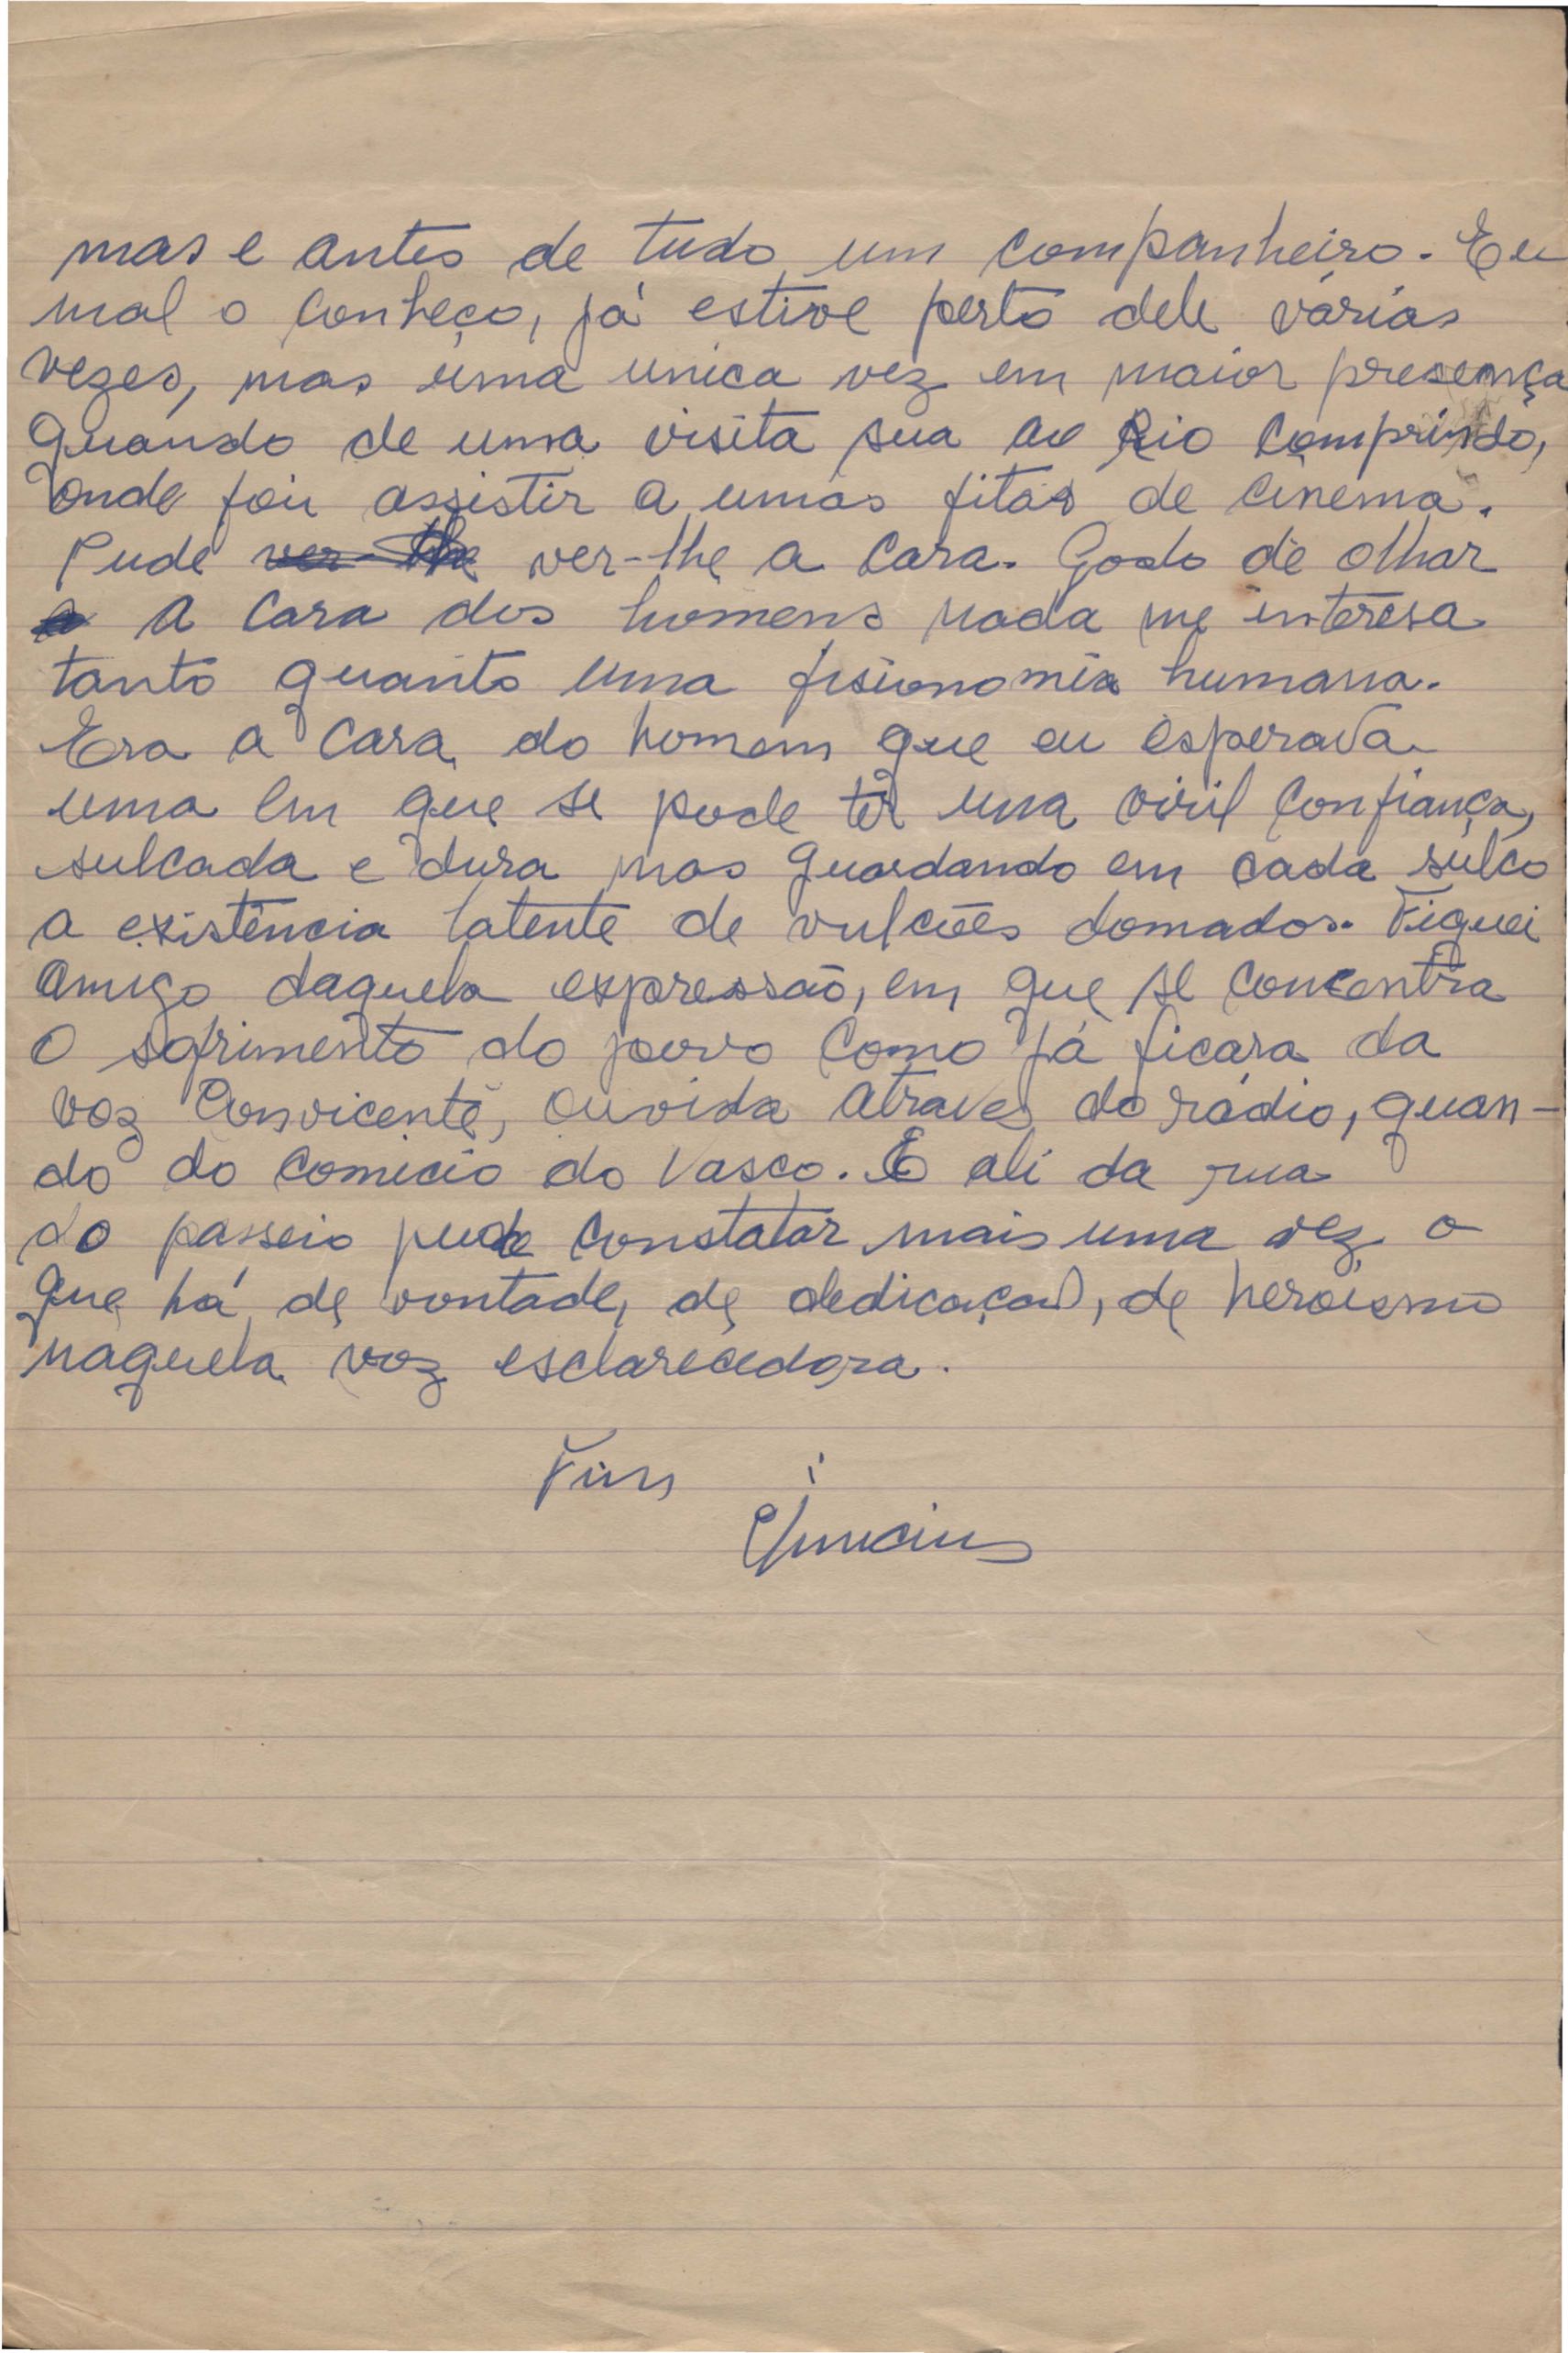 mas e antes de tudo um companheiro. Eu
mal o conheço, já estive perto dele várias
vezes, mas uma unica vez em maior presença
quando de uma visita sua ao Rio Comprindo,
onde foi assistir a umas fitas de cinema.
Pude ver-lhe ver-lhe a cara. Gosto de olhar
a a cara dos homens nada me interesa
tanto quanto uma fisionomia humana.
Era a cara do homem que eu esperava
uma em que se pode ter uma viril confiança,
sulcada e dura mas guardando em cada sulco
a existência latente de vulcões domados. Fiquei
amigo daquela expressão, em que se concentra
o sofrimento do povo como já ficara da
voz convicente, ouvida atraves do rádio, quan-
do do comicio do Vasco. E ali da rua
do passeio pude constatar mais uma vez o
que há de vontade, de dedicação, de heroismo
naquela voz esclarecedora.
Fim
Vinicius